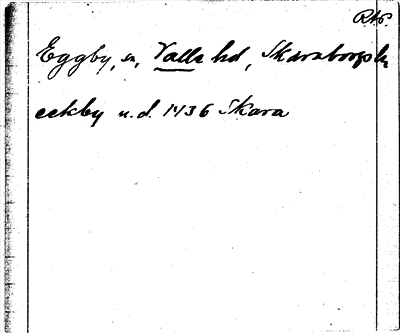 RAp.
Eggby, sn, Valle hd, Skaraborgs l.
eekby u.d. 1436 Skara